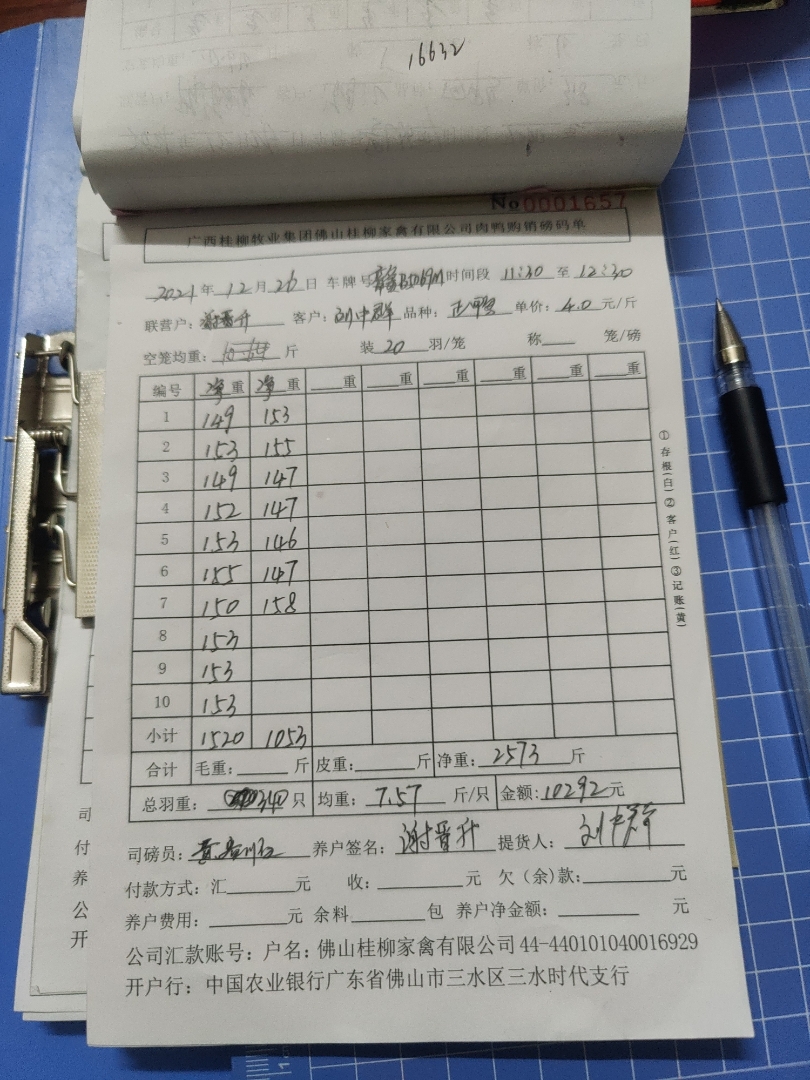 16632
No 0001657
广西桂柳牧业集团佛山桂柳家禽有限公司肉鸭购销磅码单
2021年12月26日 车牌号 时间段 11:30 至 12:30
联营户：谢晋升 客户：刘中群 品种： 单价：4.0元/斤
空笼均重： 斤 装20羽/笼 称 笼/磅
编号 净重 净重 重 重 重 重 重 重
1 149 153
2 153 155
3 149 147
4 152 147
5 153 146
6 155 147
7 150 158
8 153
9 153
10 153
小计 1520 1053
合计 毛重： 斤 皮重： 斤 净重：2573斤
总羽重：340只 均重：7.57斤/只 金额：10292元
司磅员： 养户签名：谢晋升 提货人：刘中群
付款方式：汇 元 收： 元 欠（余）款： 元
养户费用： 元 余料 包 养户净金额： 元
公司汇款账号：户名：佛山桂柳家禽有限公司 44-440101040016929
开户行：中国农业银行广东省佛山市三水区三水时代支行
①存根(白)②客户(红)③记账(黄)
司
付
养
公
开